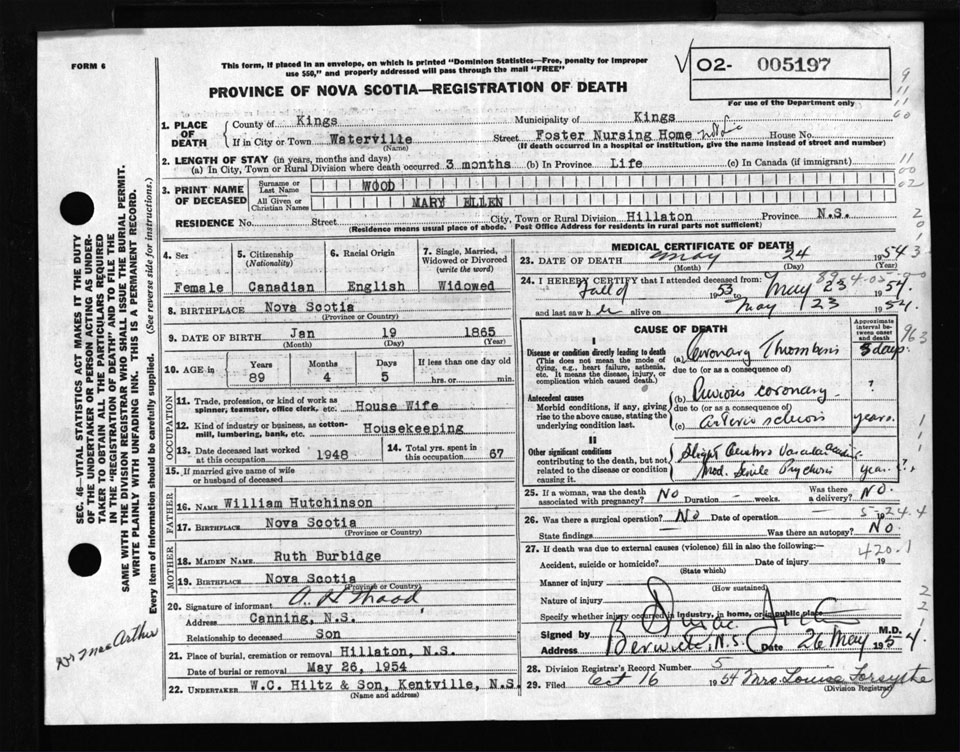 FORM 6
This form, if placed in an envelope, on which is printed "Dominion Statistics—Free, penalty for improper
use $50," and properly addressed will pass through the mail "FREE"
O2- 005197
For use of the Department only
PROVINCE OF NOVA SCOTIA—REGISTRATION OF DEATH
1. PLACE OF DEATH
County of Kings Municipality of Kings
If in City or Town Waterville Street Foster Nursing Home House No.
(Name) (If death occurred in a hospital or institution, give the name instead of street and number)
2. LENGTH OF STAY (in years, months and days)
(a) In City, Town or Rural Division where death occurred 3 months (b) In Province Life (c) In Canada (if immigrant)
3. PRINT NAME OF DECEASED
Surname or Last Name WOOD
All Given or Christian Names MARY ELLEN
RESIDENCE No. Street City, Town or Rural Division Hillaton Province N.S.
(Residence means usual place of abode. Post Office Address for residents in rural parts not sufficient)
4. Sex Female
5. Citizenship (Nationality) Canadian
6. Racial Origin English
7. Single, Married, Widowed or Divorced (write the word) Widowed
8. BIRTHPLACE Nova Scotia
(Province or Country)
9. DATE OF BIRTH Jan 19 1865
(Month) (Day) (Year)
10. AGE in Years 89 Months 4 Days 5 If less than one day old hrs. or min.
OCCUPATION
11. Trade, profession, or kind of work as spinner, teamster, office clerk, etc. House Wife
12. Kind of industry or business, as cotton-mill, lumbering, bank, etc. Housekeeping
13. Date deceased last worked at this occupation 1948
14. Total yrs. spent in this occupation 67
15. If married give name of wife or husband of deceased
FATHER
16. NAME William Hutchinson
17. BIRTHPLACE Nova Scotia
(Province or Country)
MOTHER
18. MAIDEN NAME Ruth Burbidge
19. BIRTHPLACE Nova Scotia
(Province or Country)
20. Signature of informant A. H. Wood
Address Canning, N.S.
Relationship to deceased Son
21. Place of burial, cremation or removal Hillaton, N.S.
Date of burial or removal May 26, 1954
22. UNDERTAKER W.C. Hiltz & Son, Kentville, N.S.
(Name and address)
MEDICAL CERTIFICATE OF DEATH
23. DATE OF DEATH May 24 1954
(Month) (Day) (Year)
24. I HEREBY CERTIFY that I attended deceased from:
Fall of 1953 to May 23 1954
and last saw her alive on May 23 1954
CAUSE OF DEATH
Approximate interval between onset and death
I
Disease or condition directly leading to death (a) Coronary Thombosis 3 days
(This does not mean the mode of dying, e.g., heart failure, asthenia, etc. It means the disease, injury, or complication which caused death.)
due to (or as a consequence of)
Antecedent causes (b) Previous coronary ?
Morbid conditions, if any, giving rise to the above cause, stating the underlying condition last.
due to (or as a consequence of)
(c) Arteriosclerosis years.
II
Other significant conditions
contributing to the death, but not related to the disease or condition causing it.
Slight
Mod. Senile Psychosis year ?
25. If a woman, was the death associated with pregnancy? No Duration — weeks. Was there a delivery? No.
26. Was there a surgical operation? No Date of operation — 19
State findings — Was there an autopsy? No.
5-24-4
420.1
27. If death was due to external causes (violence) fill in also the following:—
Accident, suicide or homicide? Date of injury 19
(State which)
Manner of injury
(How sustained)
Nature of injury
Specify whether injury occurred in industry, in home, or in public place
Signed by M.D.
Address Berwick, N.S. Date 26 May 1954
28. Division Registrar's Record Number 5
29. Filed Oct 16 1954 Mrs. Louise Forsythe
(Division Registrar)
SEC. 46—VITAL STATISTICS ACT MAKES IT THE DUTY
OF THE UNDERTAKER OR PERSON ACTING AS UNDER-
TAKER TO OBTAIN ALL THE PARTICULARS REQUIRED
IN THE "REGISTRATION OF DEATH" AND TO FILE THE
SAME WITH THE DIVISION REGISTRAR WHO SHALL ISSUE THE BURIAL PERMIT.
WRITE PLAINLY WITH UNFADING INK. THIS IS A PERMANENT RECORD.
Every item of Information should be carefully supplied. (See reverse side for instructions.)
Dr MacArthur